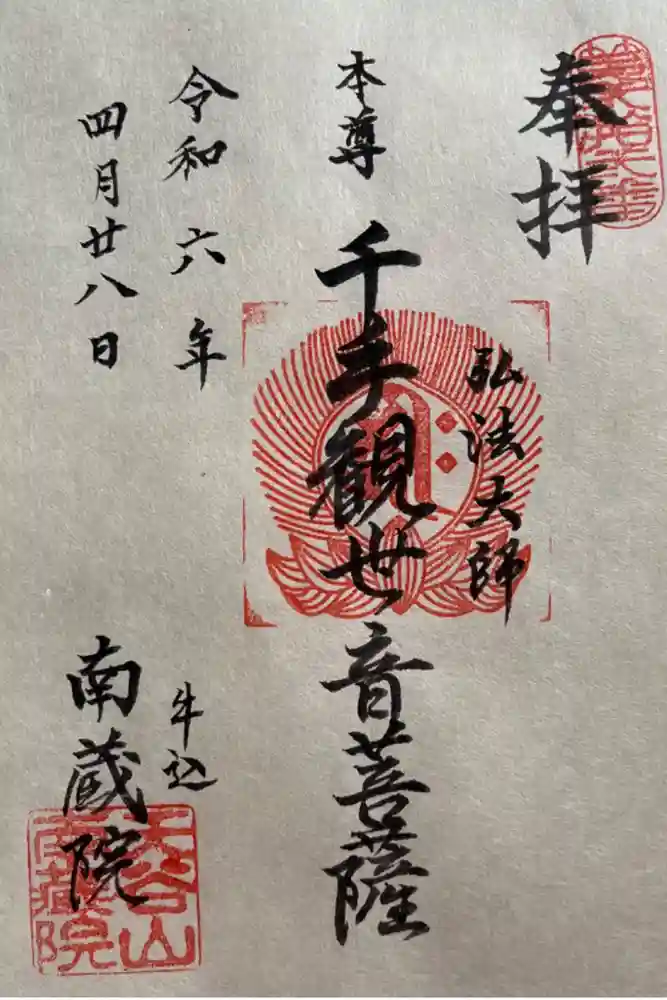 奉拝
弘法大師
本尊
千手観世音菩薩
令和六年
四月廿八日
牛込
南蔵院
天谷山
南蔵院